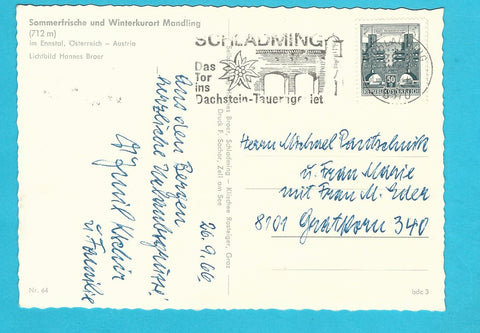 Sommerfrische und Winterkurort Mandling
(712 m)
im Ennstal, Österreich – Austria
Lichtbild Hannes Broer
SCHLADMING
Das
Tor
ins
Dachstein-Tauerngebiet
REPUBLIK ÖSTERREICH
Aus den Bergen
herzliche Urlaubsgrüsse!
u. Familie
20.9.66
Herrn Michael
u. Frau Marie
mit Frau M. Eder
8101 Gratkorn 340
Broer, Schladming – Klischee Rosteiger, Graz
Druck F. Sochor, Zell am See
Nr. 64
bdc 3